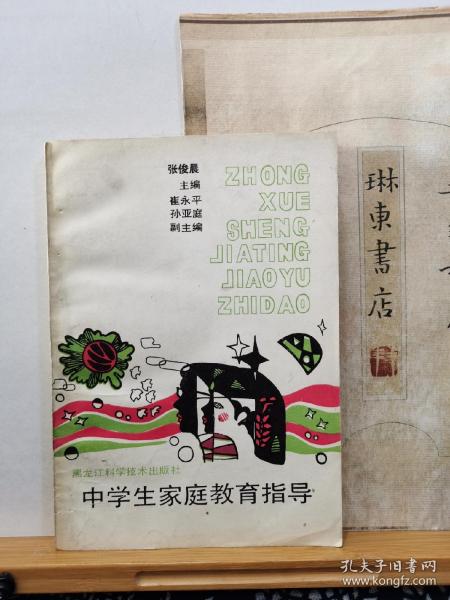 张俊晨
主编
崔永平
孙亚庭
副主编
ZHONG
XUE
SHENG
JIATING
JIAOYU
ZHIDAO
黑龙江科学技术出版社
中学生家庭教育指导
琳東書店
孔夫子旧书网
www.kongfz.com